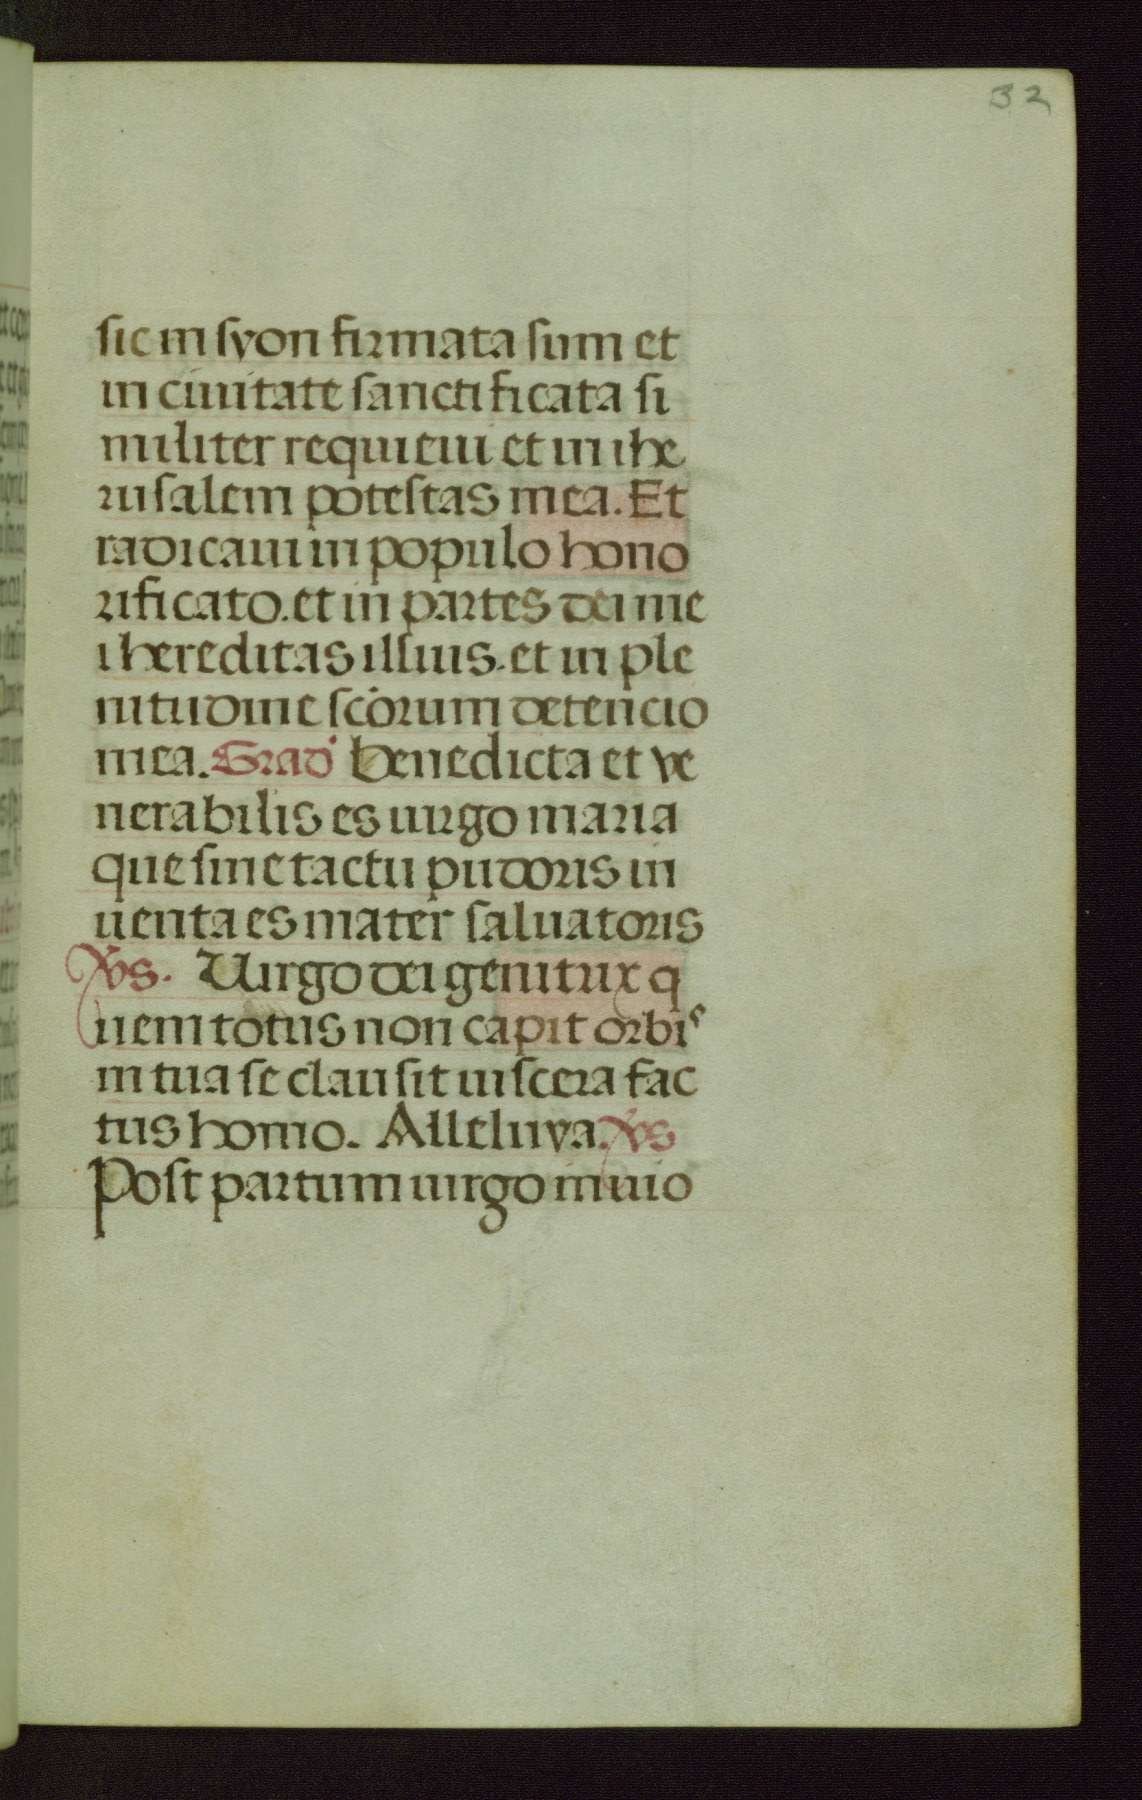 32
sic in syon firmata sum et
in ciuitate sanctificata si
militer requieui et in ihe
rusalem potestas mea. Et
radicaui in populo hono
rificato. et in partes dei me
i hereditas illius. et in ple
nitudine scōrum detencio
mea. Grad' Benedicta et ve
nerabilis es uirgo maria
que sine tactu pudoris in
uenta es mater saluatoris
Vs. Uirgo dei genitrix q
uem totus non capit orbis
in tua se clausit uiscera fac
tus homo. Alleluya. Vs
Post partum uirgo inuio